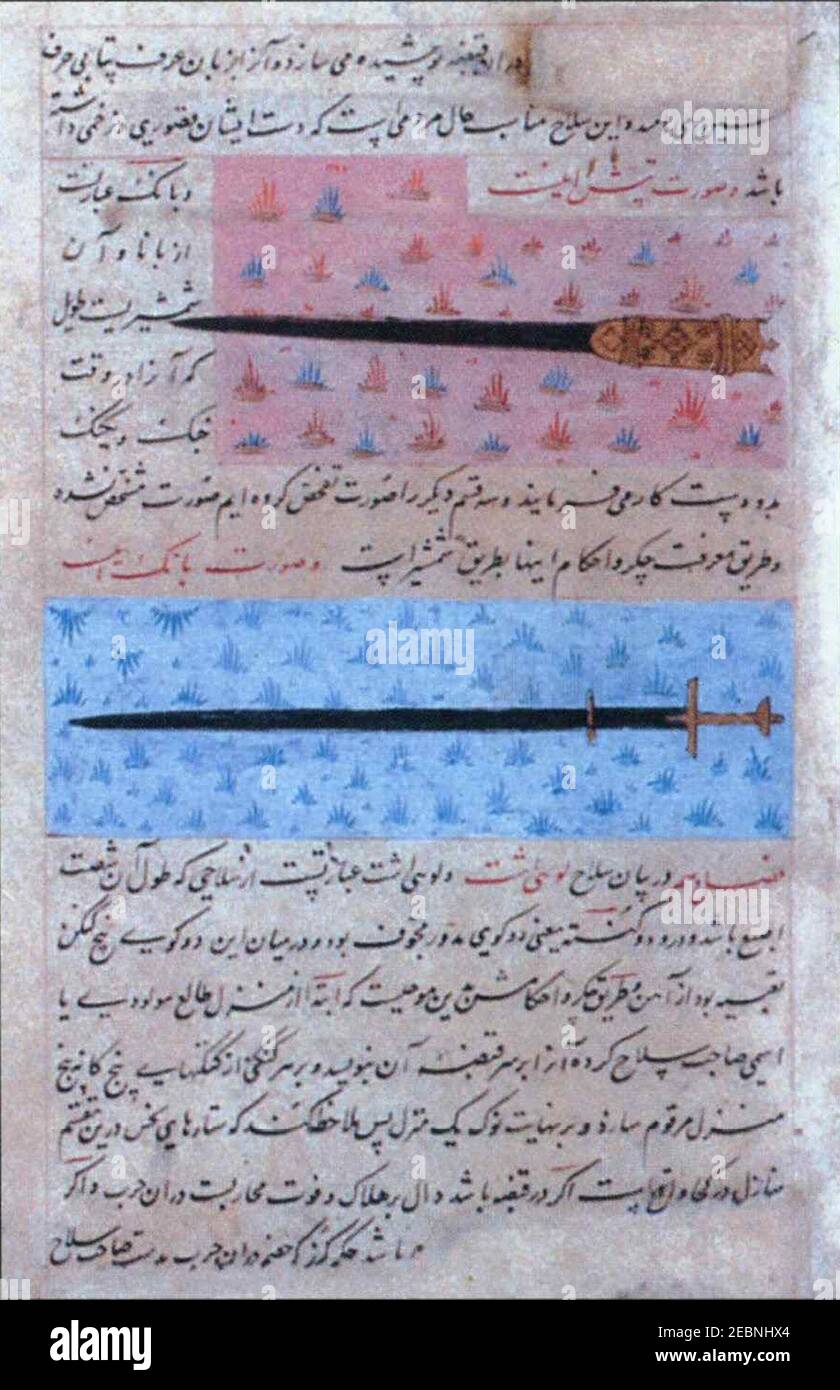 پوشیده می سازد و آنرا بزبان عرف پتا بی حرف
و این سلاح مناسب حال مردمی است که دست ایشان قصوری و زخمی داشته
باشد و صورت اینست
و بانک عبارتست
از بانا و آن
شمشیریست طویل
که آنرا در وقت
جنک و یکنک
بدو دست کار می فرمایند و سه قسم دیکر را صورت تفحص کرده ایم صورت مشخص نشده
و طریق معرفت چکر و احکام اینها بطریق شمشیر است و صورت بانک اینست
در بیان سلاح و عبارتست از سلاحی که طول آن شصت
اصبع باشد و درو دو یعنی دو کوی مدور مجوف بود و درمیان این دو کوی پنج
تعبیه بود از آهن و طریق چکر و احکامش بدین موجبست که ابتدا از منزل طالع مولود یا
اسمی صاحب سلاح کرده آنرا بر سر قبضه آن نویسد و بر سر از پنج کانه پنج
منزل مرقوم سازد و بر نهایت نوک یک منزل پس ملاحظه کند که ستارهای نحس درین
منازل در کجا واقع است اکر در قبضه باشد دال بر هلاک و فوت محاربست در ان حرب و اکر
باشد در ان حرب بدست صاحب سلاح
alamy
alamy
Image ID: 2EBNHX4
www.alamy.com